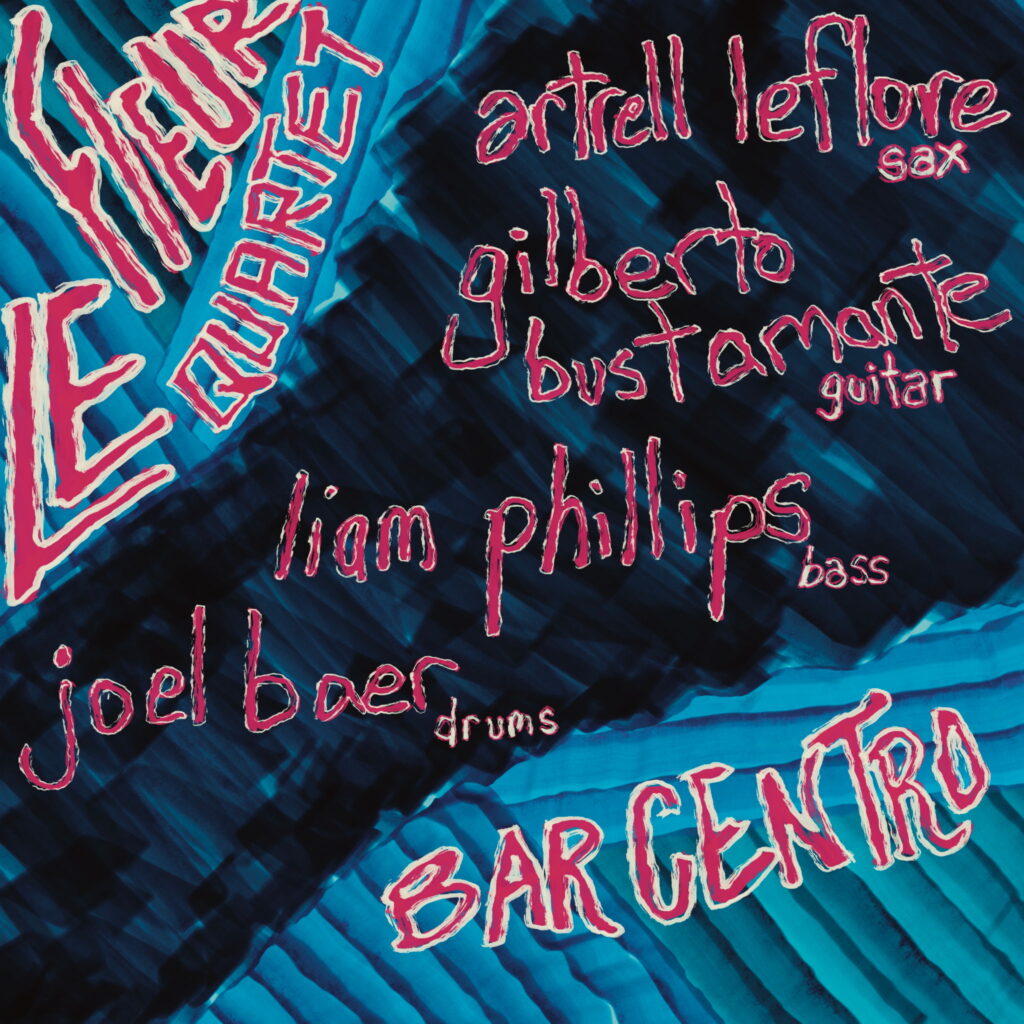 LE flEUR
QUARTET
artrell leflore
sax
gilberto
bustamante
guitar
liam phillips
bass
joel baer
drums
BAR CENTRO